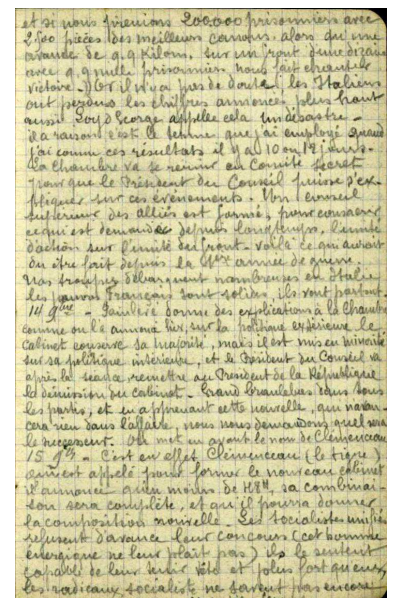 et si nous prenions 200.000 prisonniers avec
2.500 pièces des meilleurs canons alors qu'une
avance de q.q Kilom. sur un front d'une dizaine
avec q.q mille prisonniers nous fait chanter
victoire. Or il n'y a pas de doute, les Italiens
ont perdus les chiffres annoncés plus haut
aussi Loyd George appelle cela un désastre -
il a raison, c'est le terme que j'ai employé quand
j'ai connu ces résultats il y a 10 ou 12 jours.
La Chambre va se réunir en Comité secret
pour que le Président du Conseil puisse s'ex-
pliquer sur ces évènements. Un conseil
supérieur des alliés est formé, pour consacrer
ce qui est demandé depuis longtemps, l'unité
d'action sur l'unité du front - voilà ce qui aurait
du être fait depuis la année de guerre.
Nos troupes débarquent nombreuses en Italie
les pauvres Français sont solides ils vont partout.
14 9bre - Painlevé donne des explications à la Chambre
comme on l'a annoncé hier, sur la politique extérieure le
Cabinet conserve sa majorité, mais il est mis en minorité
sur sa politique intérieure, et le Président du Conseil va
après la séance, remettre au Président de la République
la démission du cabinet. - Grand dans tous
les partis, et en apprenant cette nouvelle, qui n'avan-
cera rien dans l'affaire, nous nous demandons quel sera
le successeur. On met en avant le nom de Clémenceau
15 9bre - C'est en effet Clémenceau (le tigre)
qui est appelé pour former le nouveau cabinet
il annonce qu'en moins de 48h, sa combinai-
son sera complète, et qu'il pourra donner
la composition nouvelle - Les socialistes unifiés
refusent d'avance leur concours (cet homme
énergique ne leur plait pas) ils le sentent
capable de leur tenir tête et plus fort qu'eux,
les radicaux socialiste ne savent pas encore